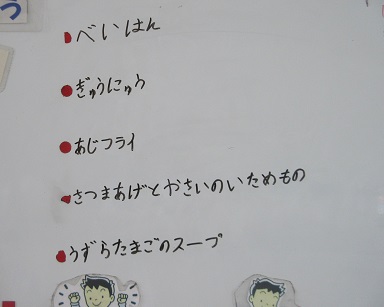 う
べいはん
ぎゅうにゅう
あじフライ
さつまあげとやさいのいためもの
うずらたまごのスープ